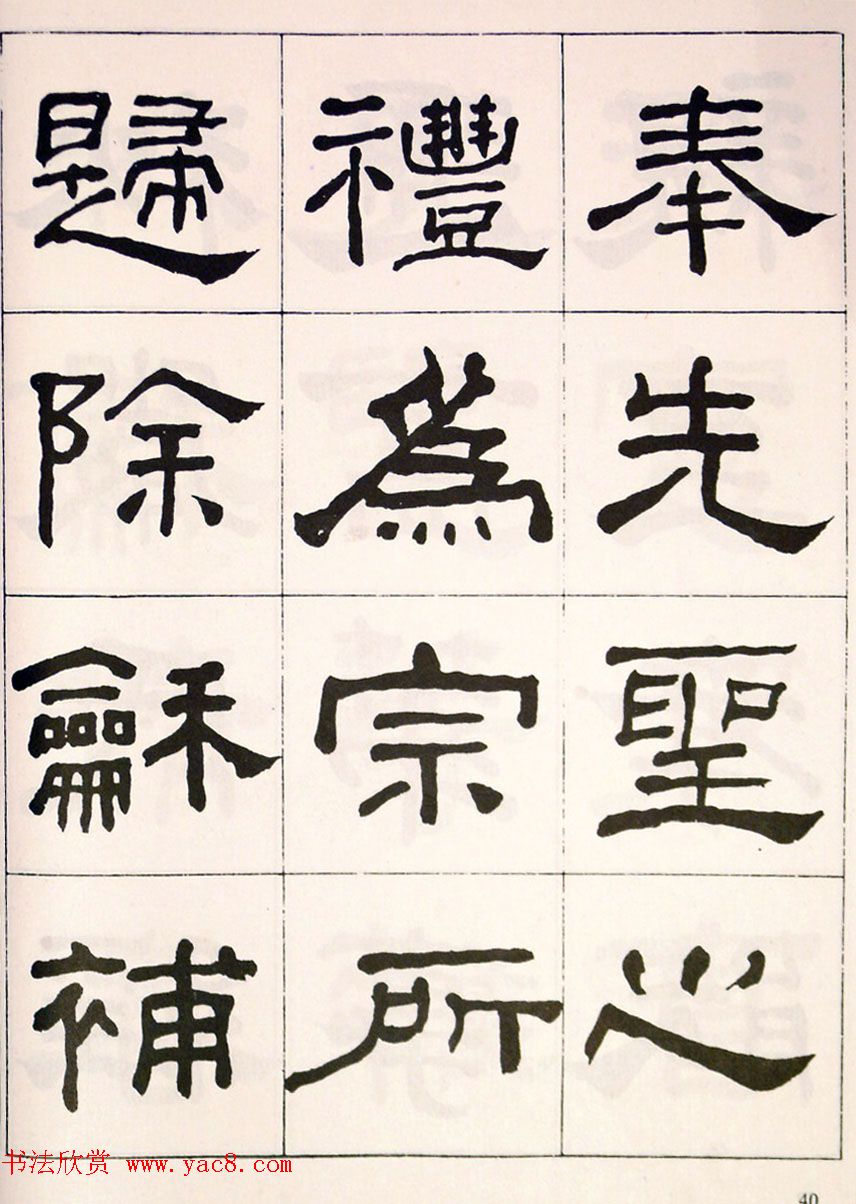 奉先聖之
禮為宗所
歸除龢補
书法欣赏 www.yac8.com
40